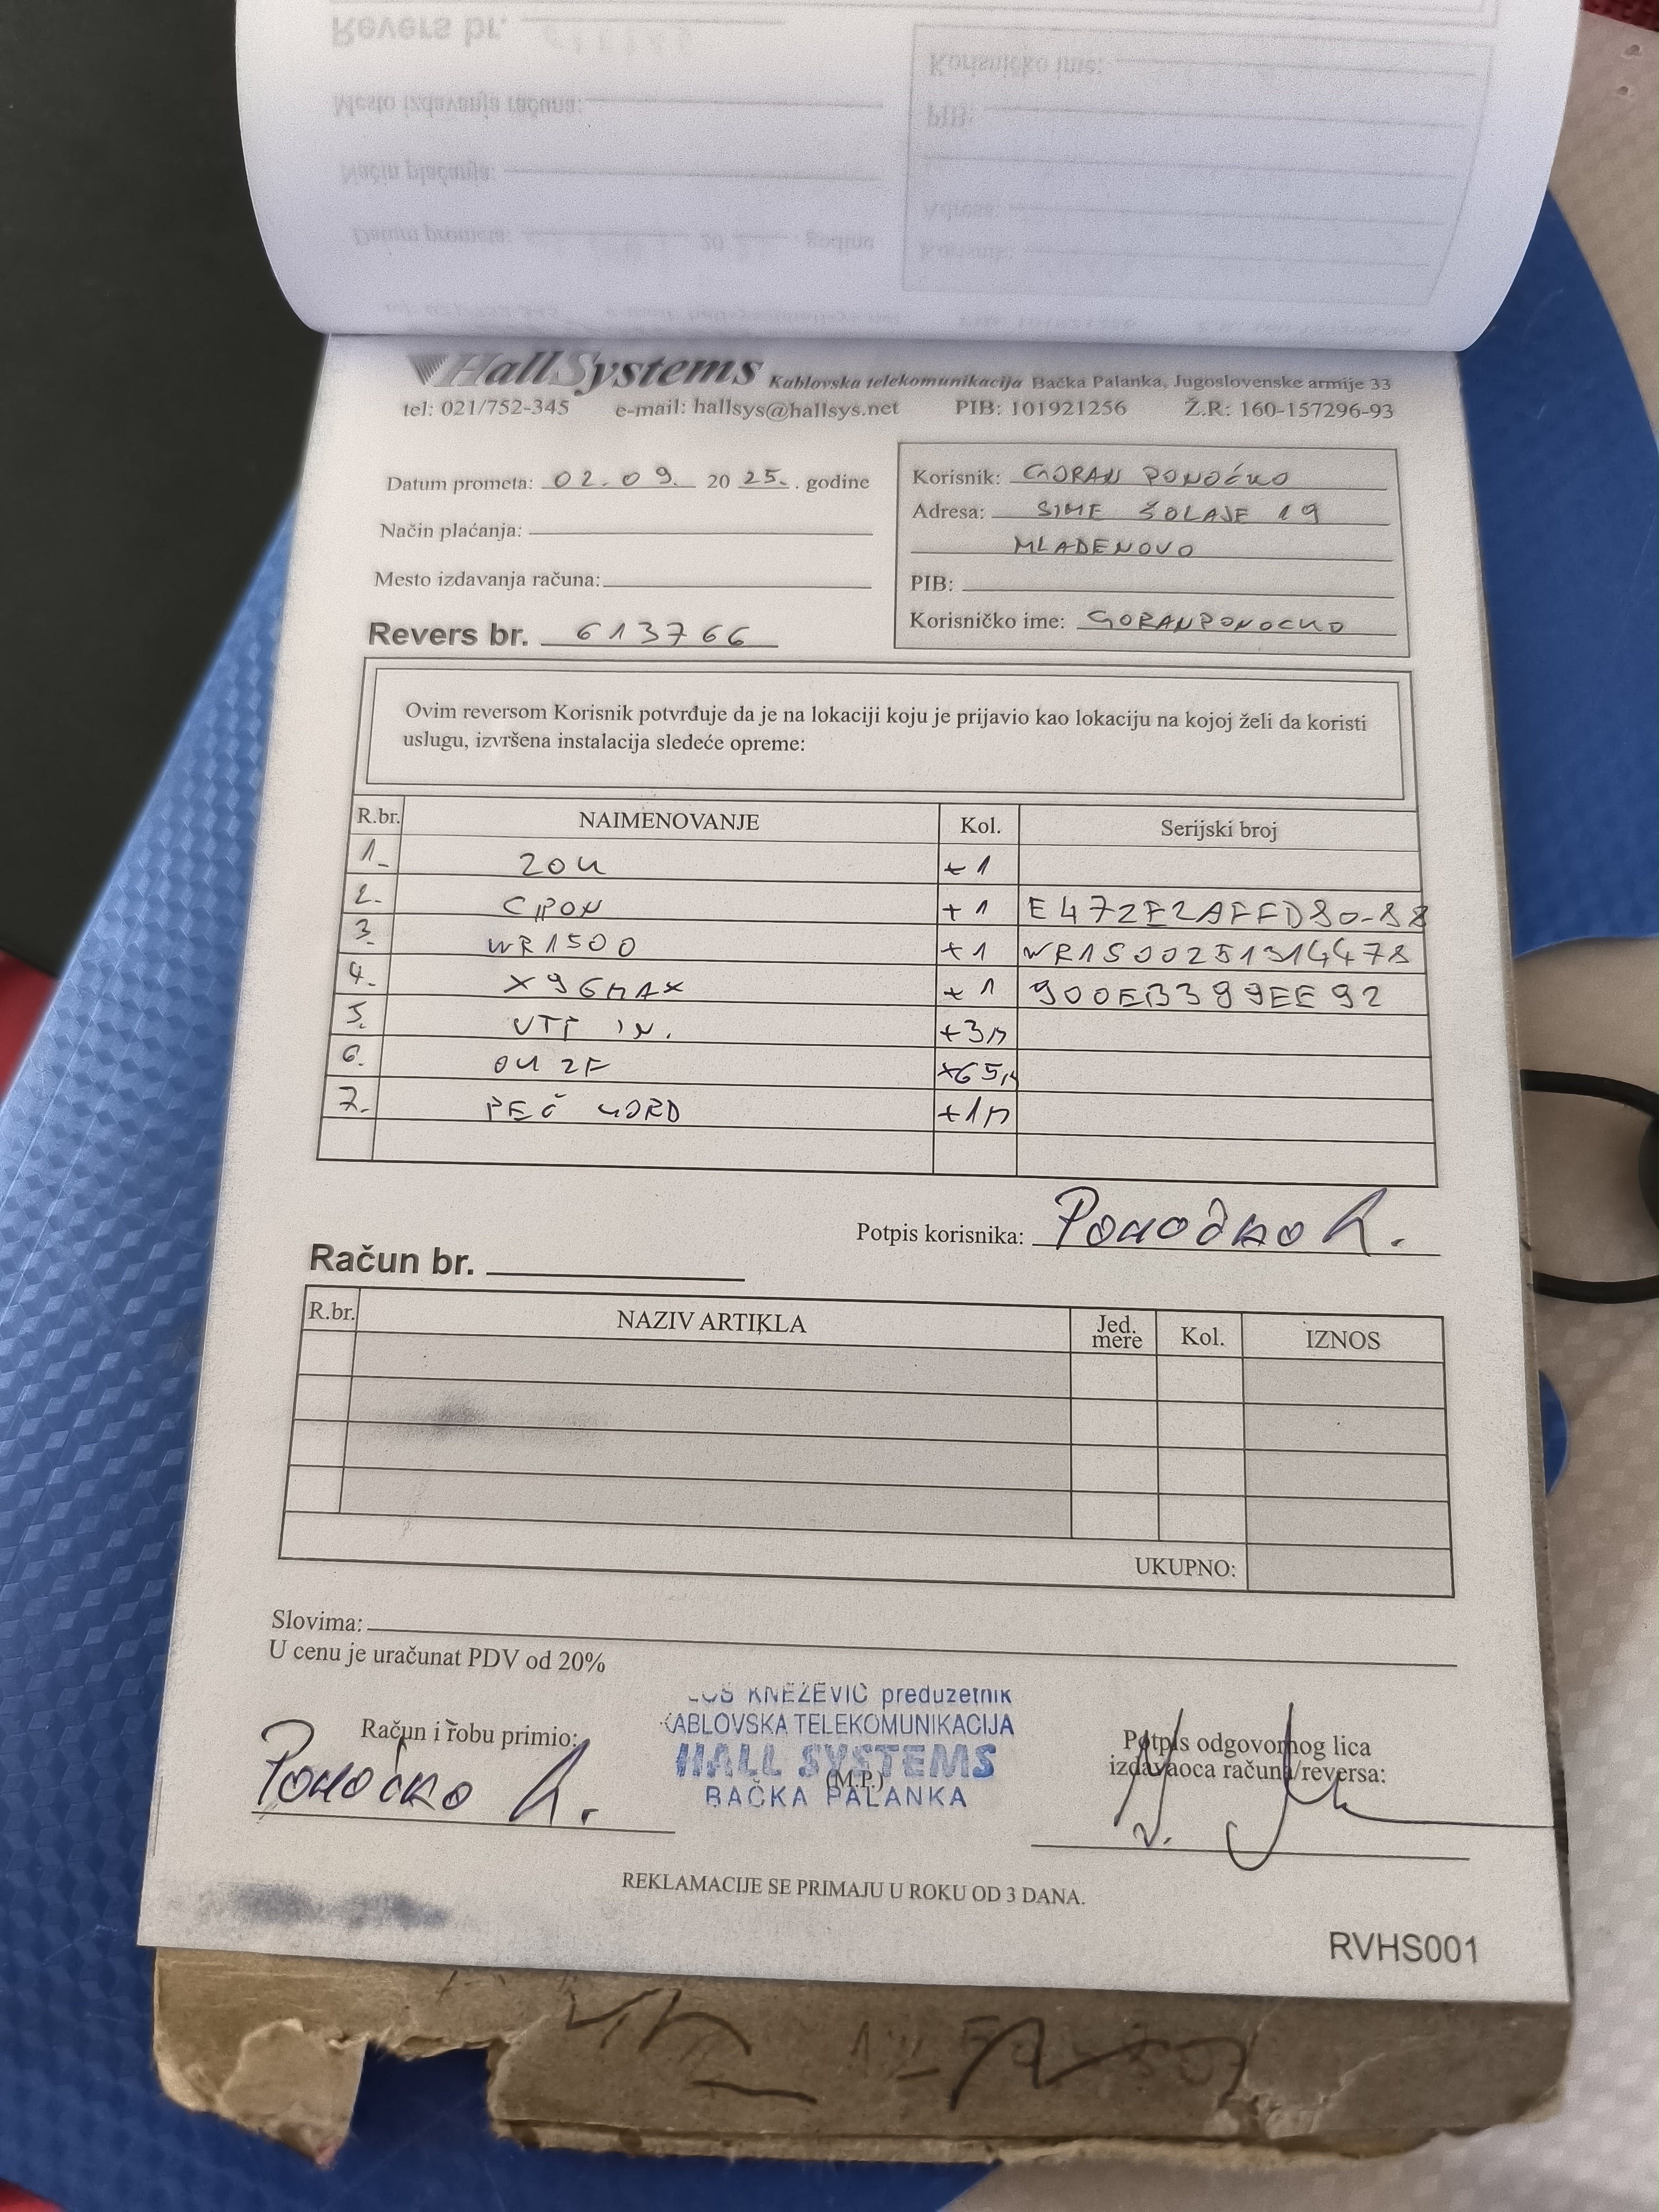 HallSystems Kablovska telekomunikacija Bačka Palanka, Jugoslovenske armije 33
tel: 021/752-345 e-mail: hallsys@hallsys.net PIB: 101921256 Ž.R: 160-157296-93
Datum prometa: 02.09. 20 25. . godine
Način plaćanja:
Mesto izdavanja računa:
Revers br. 613766
Korisnik: GORAN PONOĆKO
Adresa: SIME ŠOLAJE 19
MLADENOVO
PIB:
Korisničko ime: GORANPONOCKO
Ovim reversom Korisnik potvrđuje da je na lokaciji koju je prijavio kao lokaciju na kojoj želi da koristi
uslugu, izvršena instalacija sledeće opreme:
R.br. NAIMENOVANJE Kol. Serijski broj
1. ZOK +1
2. CPON +1 E472E2AFFD80-88
3. WR1500 +1 WR1500251314478
4. X96MAX +1 900EB399EE92
5. UTP IN. +3M
6. OK 2F +65M
7. PEČ KORD +1M
Potpis korisnika: Ponoćko
Račun br.
R.br. NAZIV ARTIKLA Jed. mere Kol. IZNOS
UKUPNO:
Slovima:
U cenu je uračunat PDV od 20%
Račun i robu primio:
Ponoćko
KNEŽEVIĆ preduzetnik
KABLOVSKA TELEKOMUNIKACIJA
HALL SYSTEMS
(M.P.)
BAČKA PALANKA
Potpis odgovornog lica
izdavaoca računa/reversa:
REKLAMACIJE SE PRIMAJU U ROKU OD 3 DANA.
RVHS001